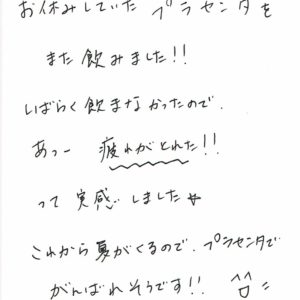 お休みしていた プラセンタを
また飲みました!!
しばらく飲まなかったので、
あっー 疲れがとれた!!
って実感しました☆
これから夏がくるので、プラセンタで
がんばれそうです!!